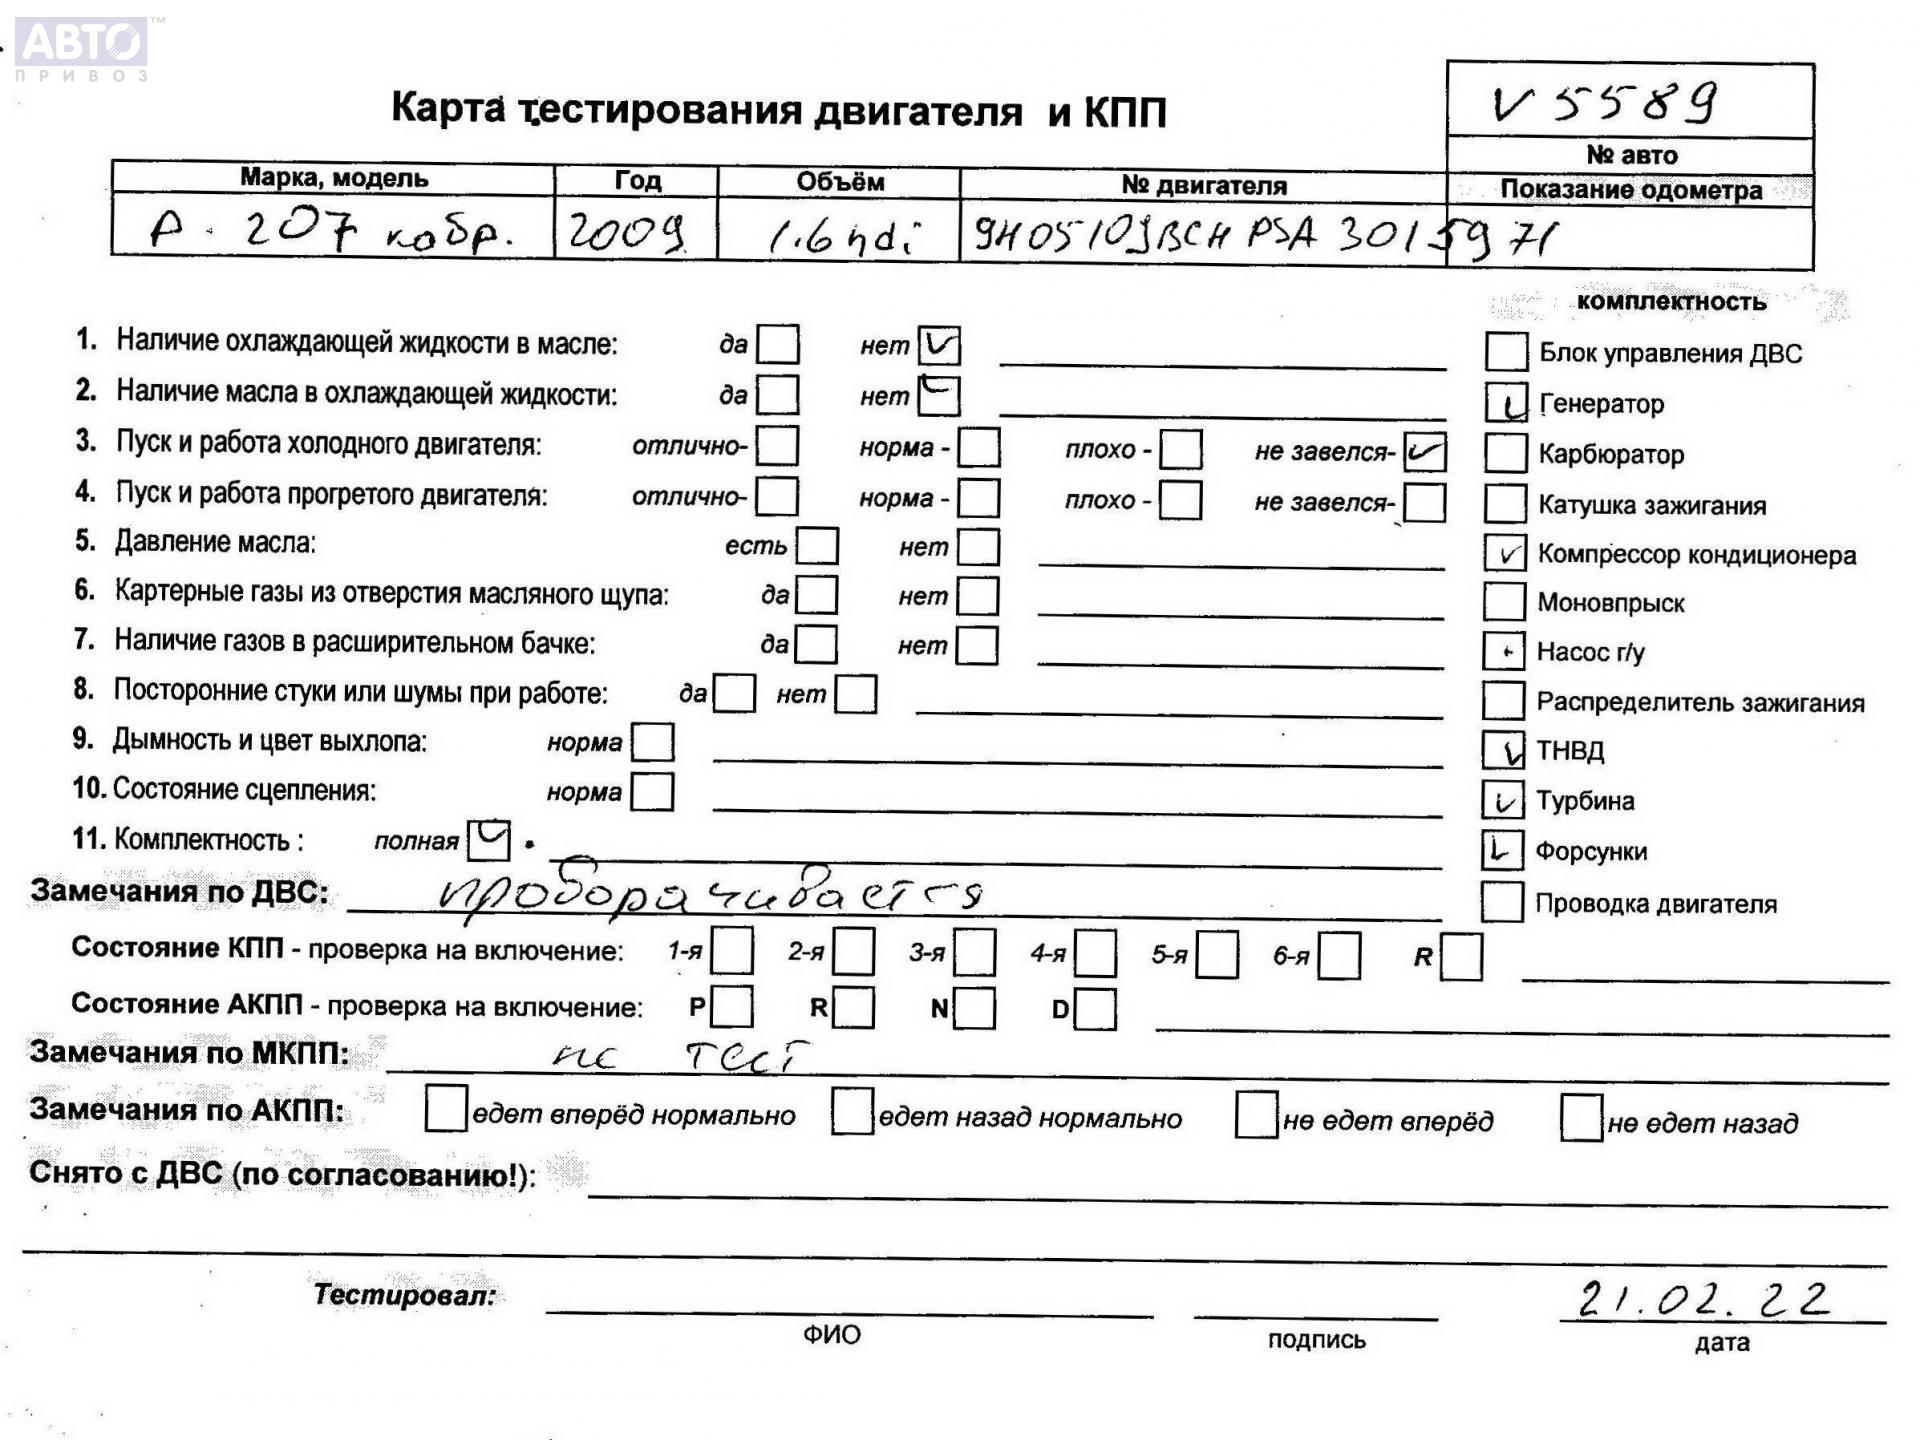 АВТО™
ПРИВОЗ
Карта тестирования двигателя и КПП
V5589
№ авто
Марка, модель Год Объём № двигателя Показание одометра
P. 207 кабр. 2009 1.6 hdi 9H05 10JBCH PSA 3015971
комплектность
1. Наличие охлаждающей жидкости в масле: да нет
Блок управления ДВС
2. Наличие масла в охлаждающей жидкости: да нет
Генератор
3. Пуск и работа холодного двигателя: отлично- норма - плохо - не завелся-
Карбюратор
4. Пуск и работа прогретого двигателя: отлично- норма - плохо - не завелся-
Катушка зажигания
5. Давление масла: есть нет
Компрессор кондиционера
6. Картерные газы из отверстия масляного щупа: да нет
Моновпрыск
7. Наличие газов в расширительном бачке: да нет
Насос г/у
8. Посторонние стуки или шумы при работе: да нет
Распределитель зажигания
9. Дымность и цвет выхлопа: норма
ТНВД
10. Состояние сцепления: норма
Турбина
11. Комплектность : полная
Форсунки
Замечания по ДВС: проворачивается
Проводка двигателя
Состояние КПП - проверка на включение: 1-я 2-я 3-я 4-я 5-я 6-я R
Состояние АКПП - проверка на включение: P R N D
Замечания по МКПП: не тест
Замечания по АКПП: едет вперёд нормально едет назад нормально не едет вперёд не едет назад
Снято с ДВС (по согласованию!):
Тестировал: 21.02.22
ФИО подпись дата